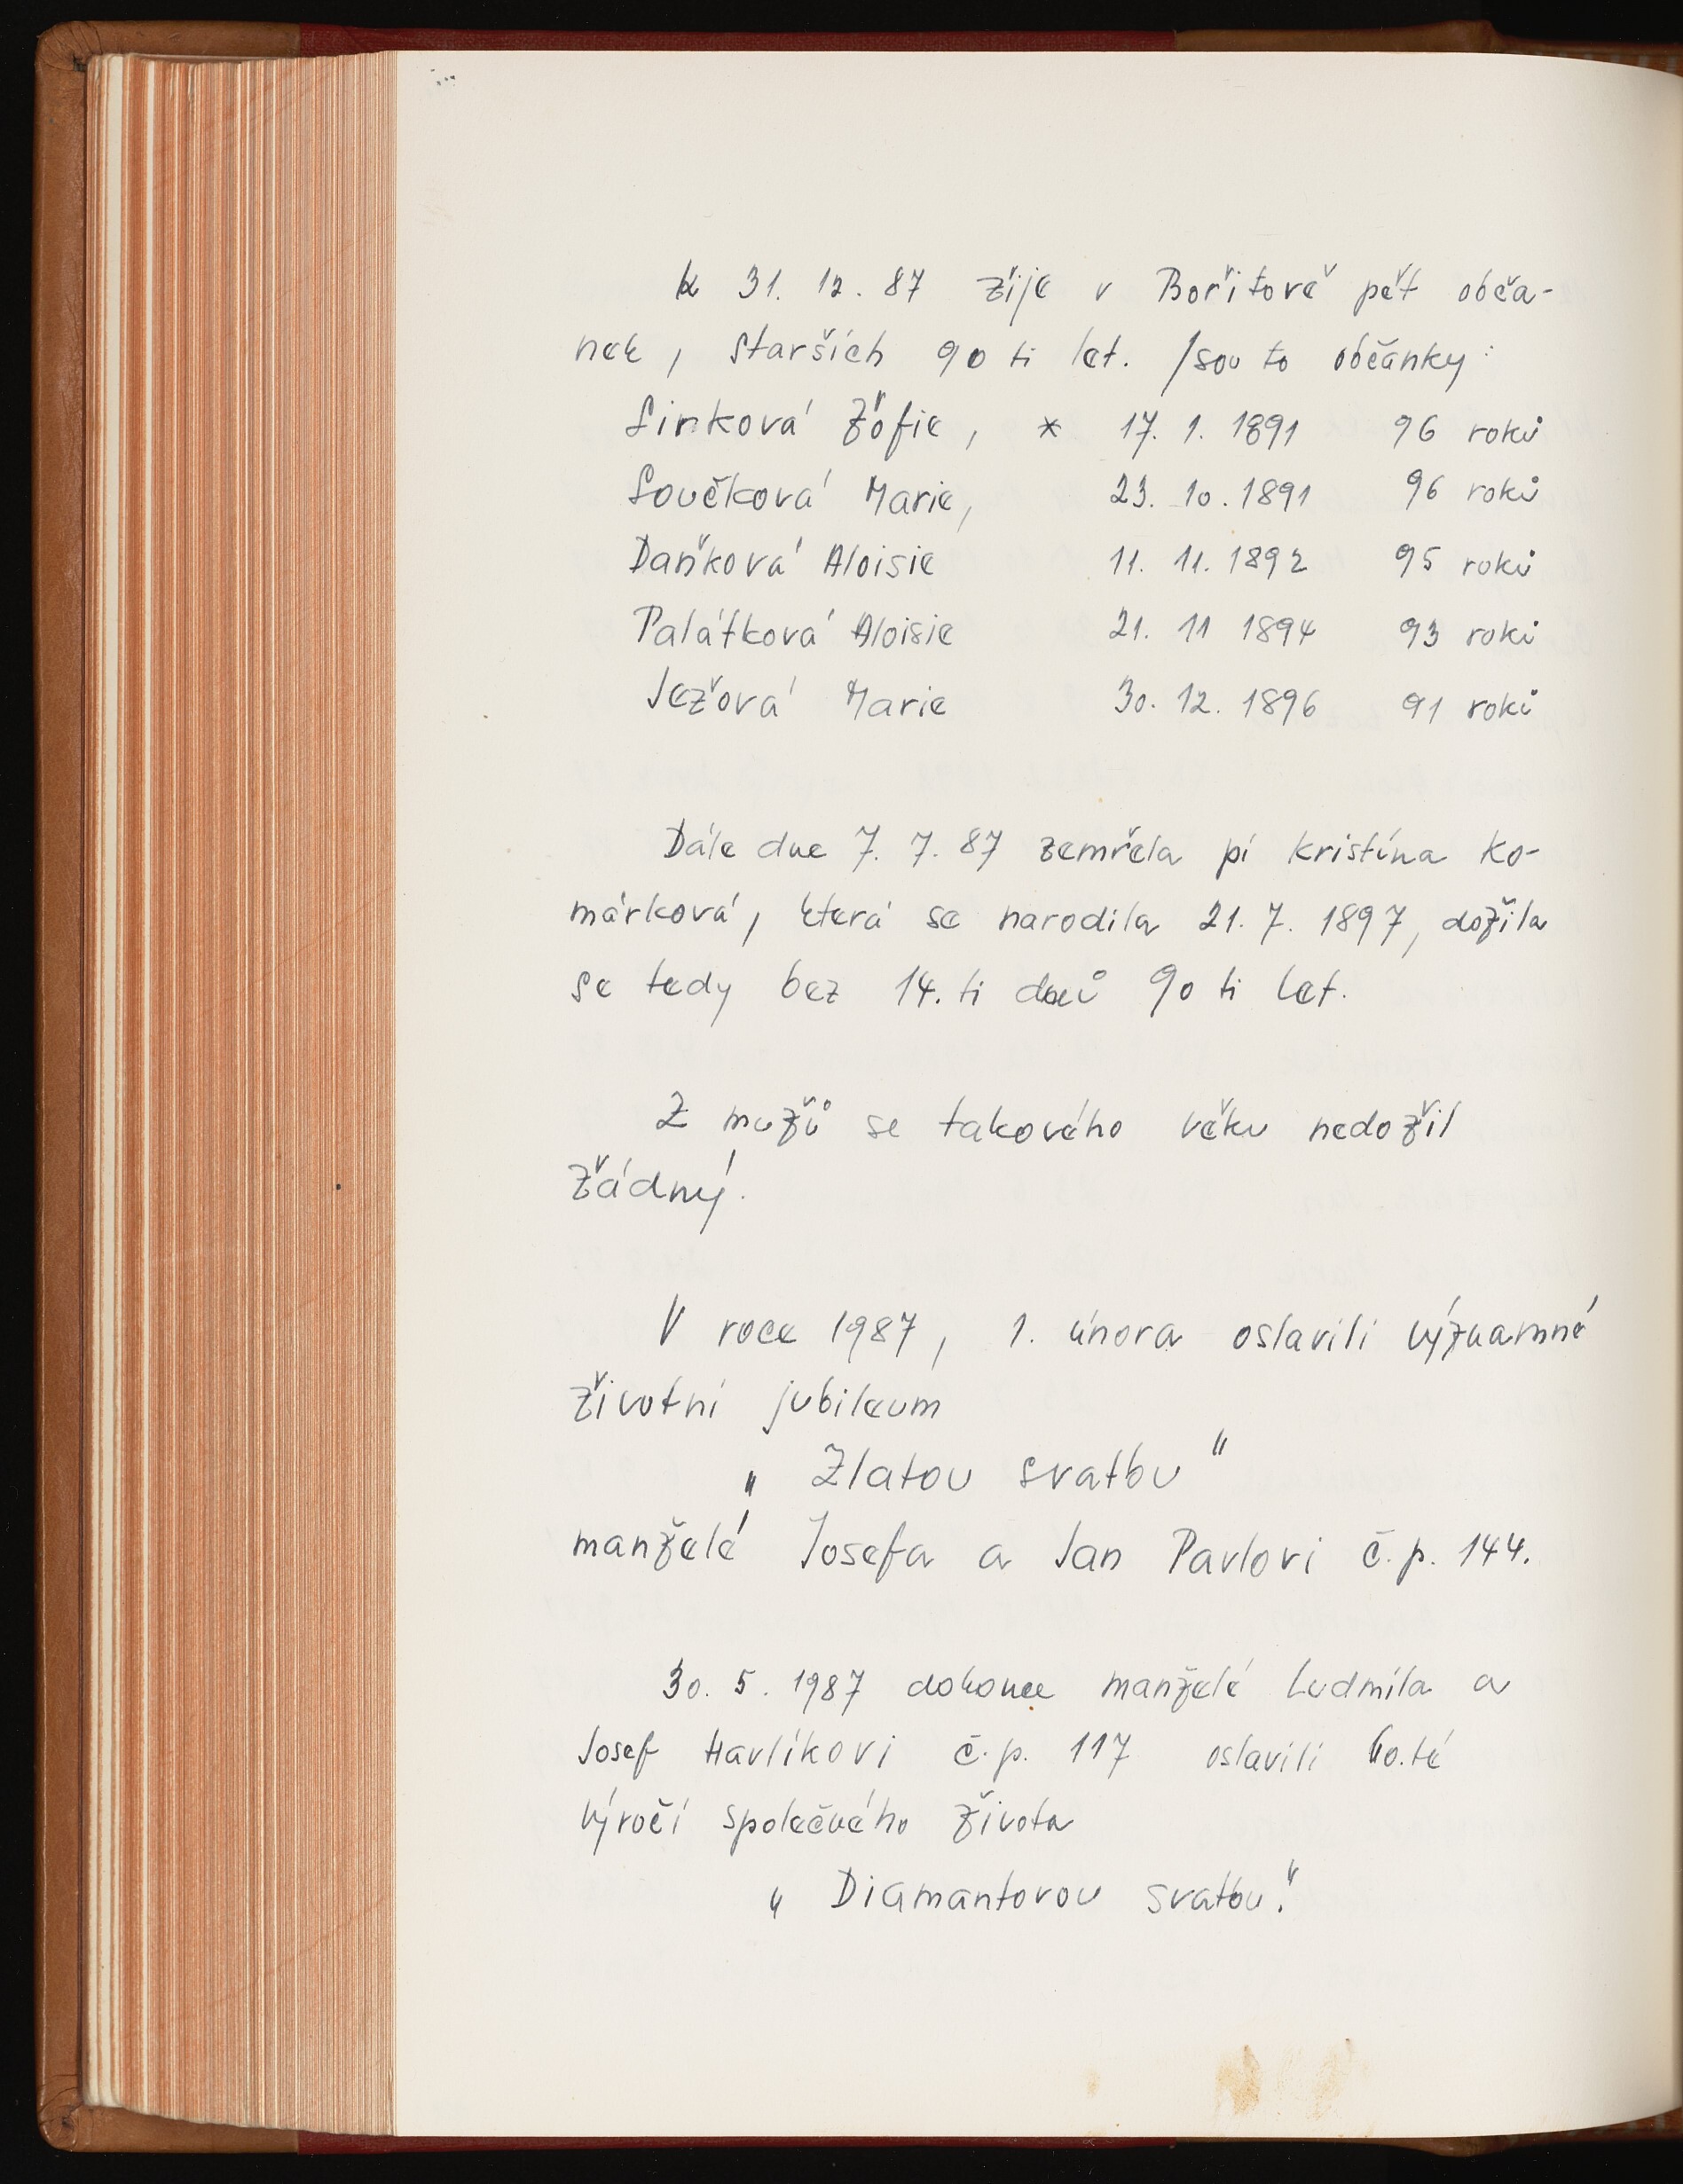 K 31. 12. 87 žije v Bořitově pět obča-
nek, starších 90 ti let. Jsou to občanky:
Sinková Žofie, * 17. 1. 1891 96 roků
Součková Marie, 23. 10. 1891 96 roků
Daňková Aloisie 11. 11. 1892 95 roků
Palátková Aloisie 21. 11 1894 93 roků
Ježová Marie 30. 12. 1896 91 roků
Dále dne 7. 7. 87 zemřela pí Kristína Ko-
márková, která se narodila 21. 7. 1897, dožila
se tedy bez 14. ti dnů 90 ti let.
Z mužů se takového věku nedožil
žádný.
V roce 1987, 1. února oslavili významné
životní jubileum
„ Zlatou svatbu "
manželé Josefa a Jan Pavlovi č. p. 144.
30. 5. 1987 dokonce manželé Ludmila a
Josef Havlíkovi č. p. 117 oslavili 60. té
výročí společného života
„ Diamantovou svatbu."